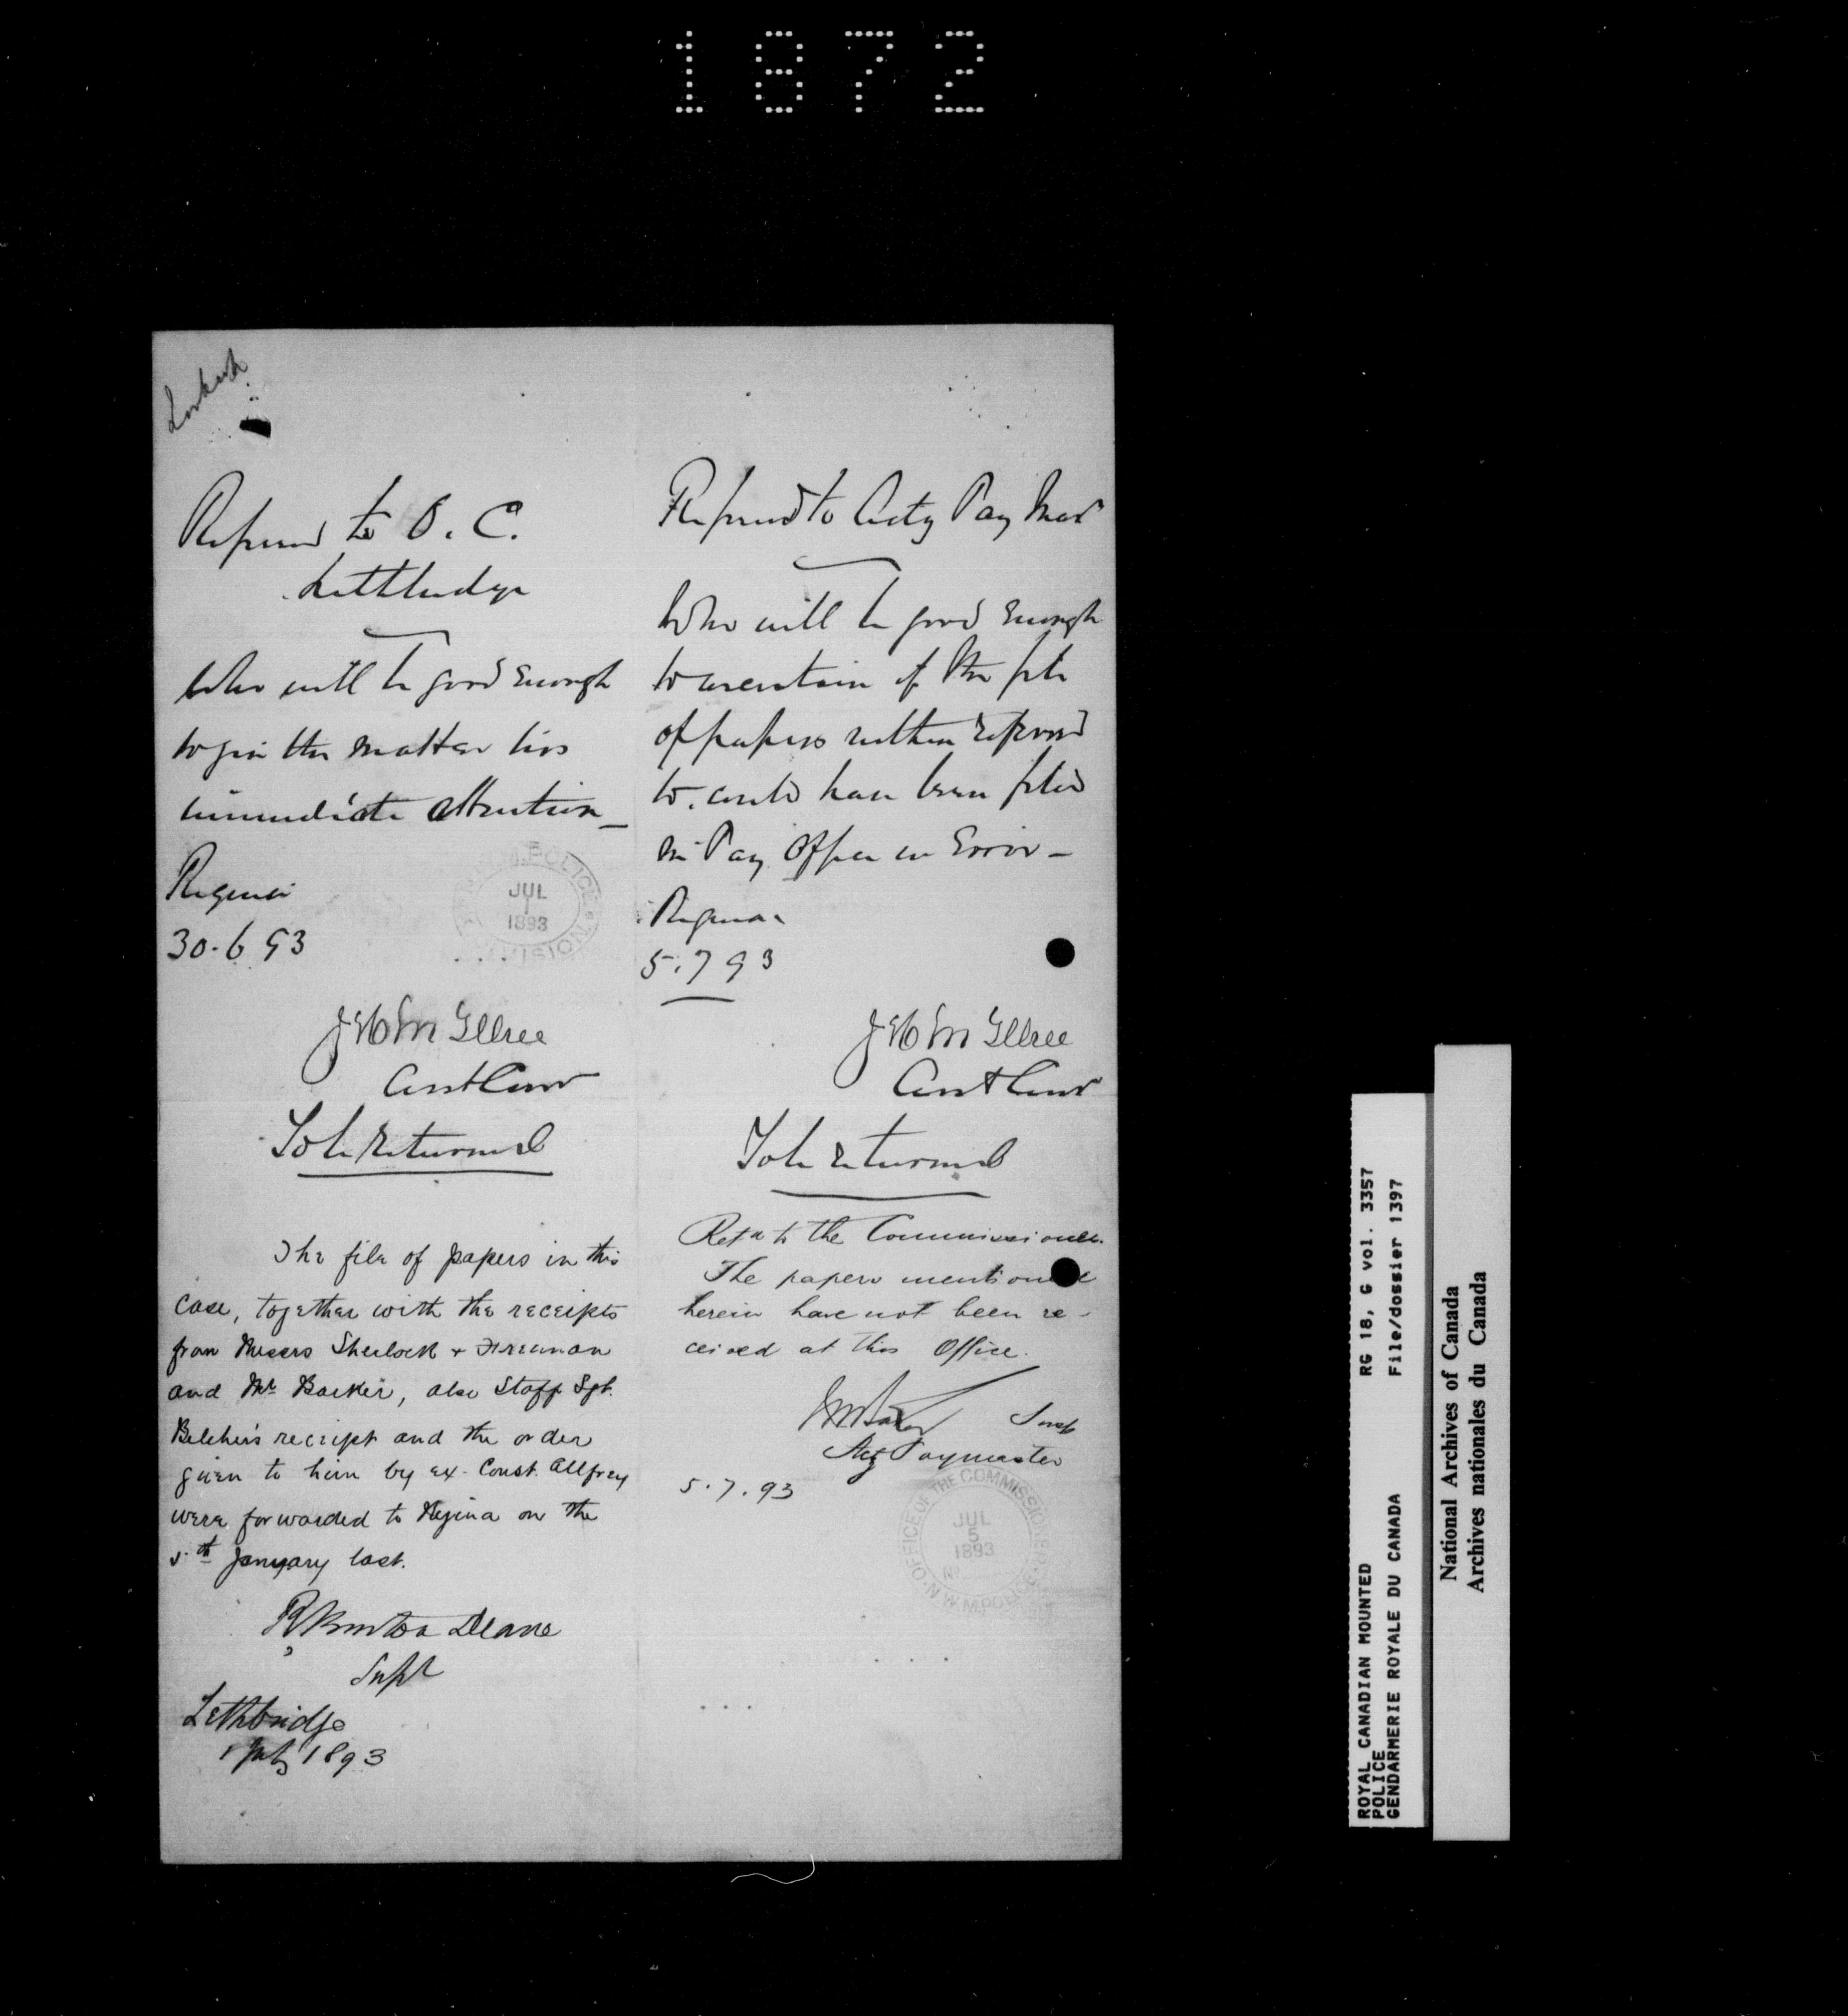 1872
Referred to O. C.
Lethbridge
Who will be good enough
to give this matter his
immediate attention_
Regina
30.6.93
JUL
1
1893
POLICE
DIVISION
J H McIllree
Asst Comr
To be returned
The file of papers in this
case, together with the receipts
from Messrs Sherlock + Freeman
and Mr Barker, also Staff Sgt.
Belcher's receipt and the order
given to him by ex-Const. Allfrey
were forwarded to Regina on the
5th January last.
R Burton Deane
Supt
Lethbridge
1 July 1893
Referred to Actg Pay Mast
Who will be good enough
to ascertain if the file
of papers within referred
to could have been filed
in Pay Office in Error –
Regina
5.7.93
J H McIllree
Asst Comr
To be returned
Retd to the Commissioner.
The papers mentioned
herein have not been re-
ceived at this Office.
Insp
Actg Paymaster
5.7.93
OFFICE OF THE COMMISSIONER
JUL
5
1893
N.W.M.POLICE
ROYAL CANADIAN MOUNTED RG 18, G vol. 3357
POLICE
GENDARMERIE ROYALE DU CANADA File/dossier 1397
National Archives of Canada
Archives nationales du Canada